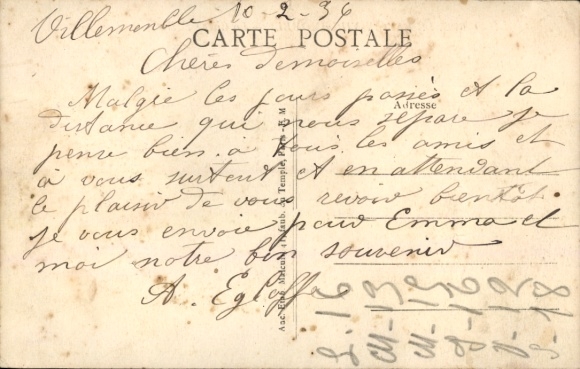 Villemomble 10-2-36
CARTE POSTALE
Chères Demoiselles
Adresse
Malgré les jours passés et la
distance qui nous sépare je
pense bien à tous les amis et
à vous surtout et en attendant
le plaisir de vous revoir bientôt
je vous envoie pour Emma et
moi notre bon souvenir
A. Egloff